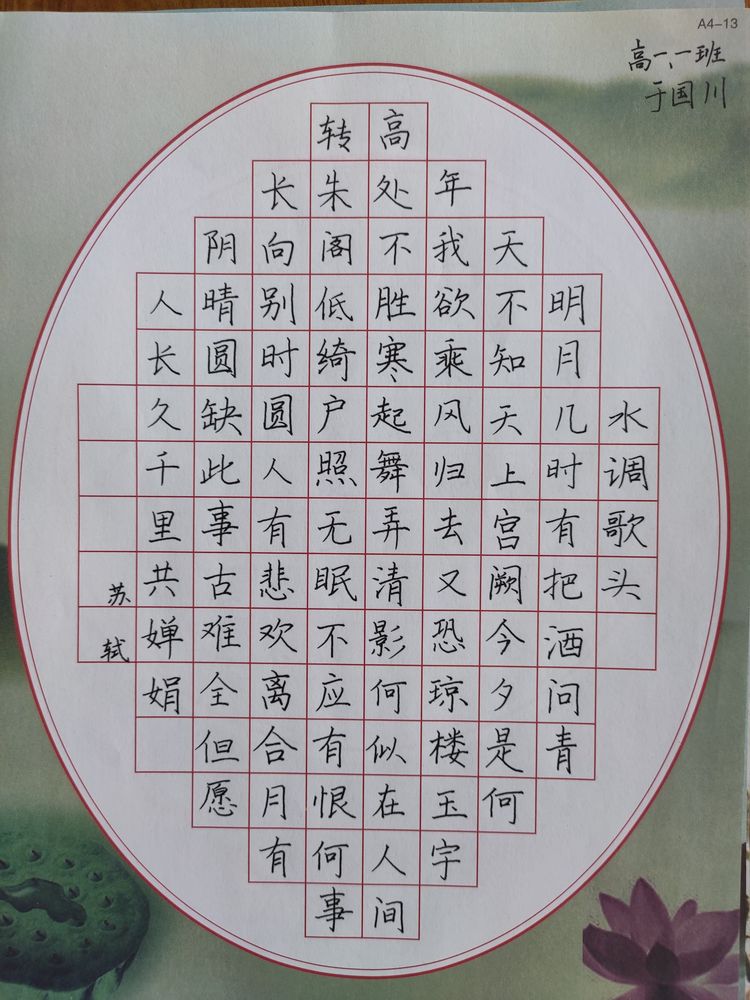 A4-13
高一、一班
于国川
水调歌头
明月几时有把洒问青
天不知天上宫阙今夕是何
年我欲乘风归去又恐琼楼玉宇
高处不胜寒起舞弄清影何似在人间
转朱阁低绮户照无眠不应有恨何事
长向别时圆人有悲欢离合月有
阴晴圆缺此事古难全但愿
人长久千里共婵娟
苏轼